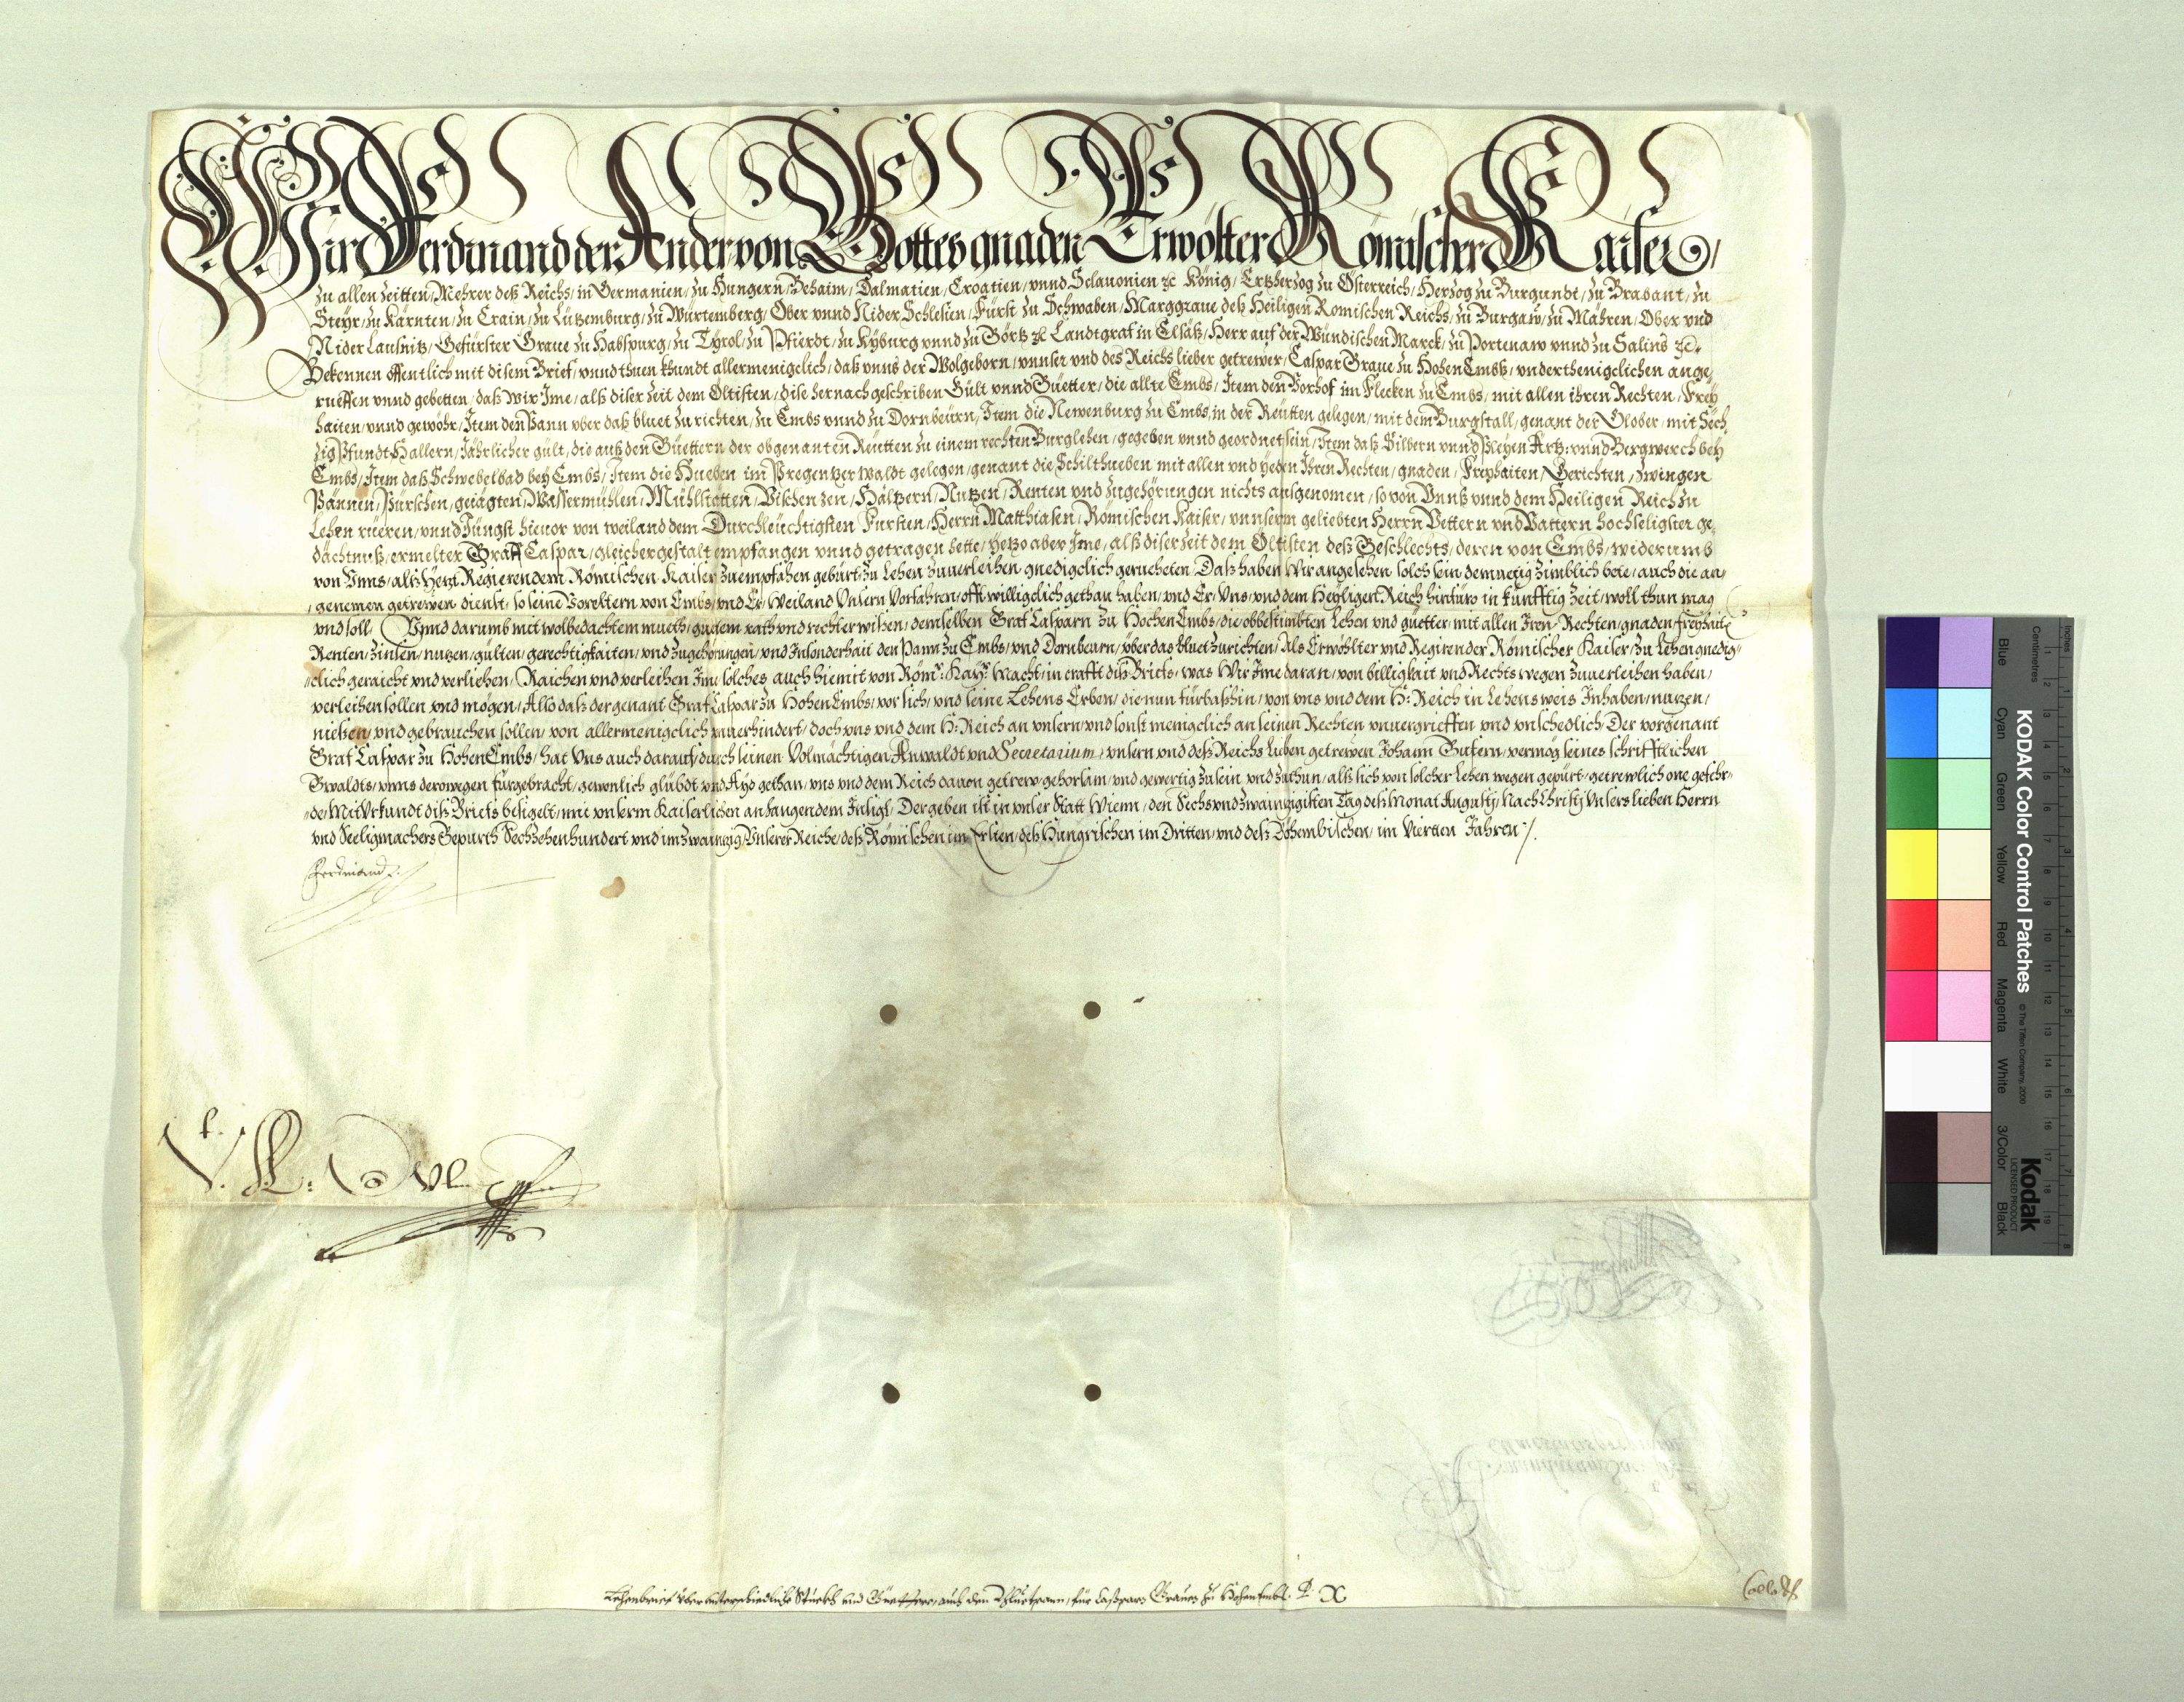 Wir Ferdinand der Ander von Gottes gnaden Erwölter Römischer Kaiser /
zu allen Zeitten / Mehrer deß Reichs / in Germanien / zu Hungern / Behaim / Dalmatien / Croatien / vnnd Sclauonien ꝛc König / Ertzherzog zu Österreich / Herzog zu Burgundt / zu Brabant / zu
Steyr / zu Kärnten / zu Crain / zu Lützemburg / zu Würtemberg / Ober vnnd Nider Schlesien / Fürst zu Schwaben / Marggraue deß Heiligen Römischen Reichs / zu Burgaw / zu Mähren / Ober vnd
Nider Lausnitz / Gefürster Graue zu Habspurg / zu Tyrol / zu Pfierdt / zu Kyburg vnnd zu Görtz ꝛc Landtgraf in Elsäß / Herr auf der Windischen Marck / zu Portenaw vnnd zu Salins ꝛc.
Bekennen öffentlich mit disem Brief / vnnd thuen khundt allermenigclich / daß vnns der Wolgeborn / vnnser vnd des Reichs lieber getrewer / Caspar Graue zu HohenEmbß / vnderthenigclichen ange,
rueffen vnnd gebetten / daß wir Ime / alß diser zeit dem Eltisten / dise hernach geschriben Gült vnnd Güetter / die allte Embs / Item den Vorhof im Flecken zu Embs / mit allen ihren Rechten / Frey
haiten / vnnd gewöhr / Item den Pann vber daß bluet zu richten / zu Embs vnnd zu Dornbeürn / Item die Newenburg zu Embs in der Reütten gelegen / mit dem Burgstall / genant der Glober / mit Sech
zig Pfundt Hallern / Jährlicher gült / die auß den Güettern der obgenanten Reütten zu einem rechten Burglehen / gegeben vnnd geordnet sein / Item daß Silbern vnnd Pleyen Artz : vnnd Bergwerch bey
Embs / Item daß Schwebelbad bey Embs / Item die Hueben im Pregentzer Waldt gelegen / genant die Schilthueben mit allen vnd yeden Ihren Rechten / gnaden / Freyhaiten / Gerichten / Zwingen
Pännen / Pürschen / geiägten / Wassermühlen / Mühlstätten / Vischenzen / Höltzern / Nutzen / Renten vnd zugehörungen nichts ausgenomen / so von Vnnß vnnd dem Heiligen Reich zu
Lehen rüeren / vnnd Jüngst hieuor von weiland dem Durchleüchtigsten Fursten / Herrn Matthiasen / Römischen Kaiser / vnnserm geliebten Herrn Vettern vnd Vattern hochseligster ge,
dächtnuß ermelter Graff Caspar / gleicher gestalt empfangen vnnd getragen hette / Yetzo aber Ime / alß diser zeit dem Eltisten deß Geschlechts / deren von Embs / widerumb
von Vnns / alß Yetzt Regierendem Römischen Kaiser zu empfahen gebürt / zu Lehen zuuerleihen gnedigclich geruecheten / Daß haben Wir angesehen solch sein demuetig zimblich bete / auch die an,
genemen getrewen dienst / so seine Voreltern von Embs / vnd Er / Weiland Vnsern Vorfahren / offt willigclich gethan haben / vnd Er / Vns / vnd dem Heyligen Reich hinfüro in kunfftig Zeit / woll thun mag
vnd soll. Vnnd darumb mit wolbedachtem mueth / gutem rath vnd rechter wißen / demselben Graf Casparn zu HochenEmbs / die obbestimbten Lehen vnd güetter / mit allen Iren Rechten / gnaden / freyhaite
Renten / Zinsen / nutzen / gulten / gerechtigkaiten / vnd zugehörungen / vnd Insonderhait den Pann zu Embs / vnd Dornbeurn / vber das bluet zurichten / Als Erwöhlter vnd Regirender Römischer Kaiser / zu Lehen gnedig
clich geraicht vnd verliehen / Raichen vnd verleihen Ime solches auch hiemit von Röm: Kay: Macht / in crafft diß Briefs / was Wir Ime daran / von billigkait vnd Rechts wegen zuuerleihen haben /
verleihen sollen vnd mögen / Also daß der genant Graf Caspar zu HohenEmbs / vor sich / vnd seine Lehens Erben / die nun fürbaßhin / von vns vnd dem H: Reich in Lehensweis Inhaben / nutzen /
nießen / vnd gebrauchen sollen / von allermenigclich vnuerhindert / doch vns vnd dem H: Reich an vnsern / vnd sonst meniglich an seinen Rechten vnuergriffen vnd vnschedlich / Der vorgenant
Graf Caspar zu HohenEmbs / hat Vns auch darauf / durch seinen Volmächtigen Anwaldt vnd Secretarium / vnsern vnd deß Reichs lieben getrewen Johann / vermög seines schrifftlichen
Gwaldts / vnns derowegen fürgebracht / gewonlich glübdt vnd Ayd gethan / vns vnd dem Reich dauon getrew / gehorsam / vnd gewertig zu sein vnd zuthun / alß sich von solcher Lehen wegen gepürt / getrewlich one gefehr,
de / Mit Vrkundt diß Briefs besigelt / mit vnserm Kaiserlichen anhangendem Insigl / Der geben ist in vnser Statt Wienn / den Sechsvndzwainzigisten Tag deß Monat Augusty / Nach Christy Vnsers lieben Herrn
vnd Seeligmachers Gepurth Sechzehenhundert vnd im Zwainzig / Vnserer Reiche / deß Römischen im Ersten / deß Hungrischen im Dritten / vnd deß Böhembischen / im Vierten Jahren /.
Ferdinand
Lehenbrief vber vnterschiedliche Stuckh vnd Güettere, auch den Bluetpann, für Casparn Grauen zu HohenEmbs.